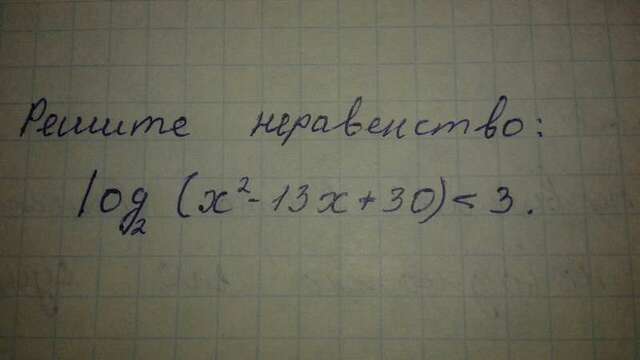 Решите неравенство:
log₂ (x²-13x+30)<3.